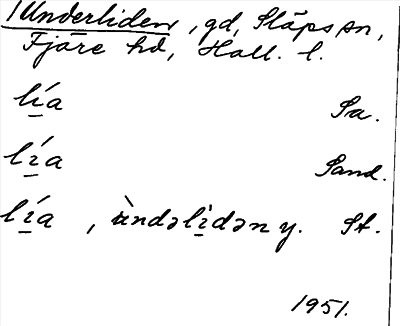 Underliden, gd, Släps sn,
Fjäre hd, Hall. l.
lí̱a Sa.
lí̱a Sand.
lí̱a , ùndəli̱dən y. St.
1951.